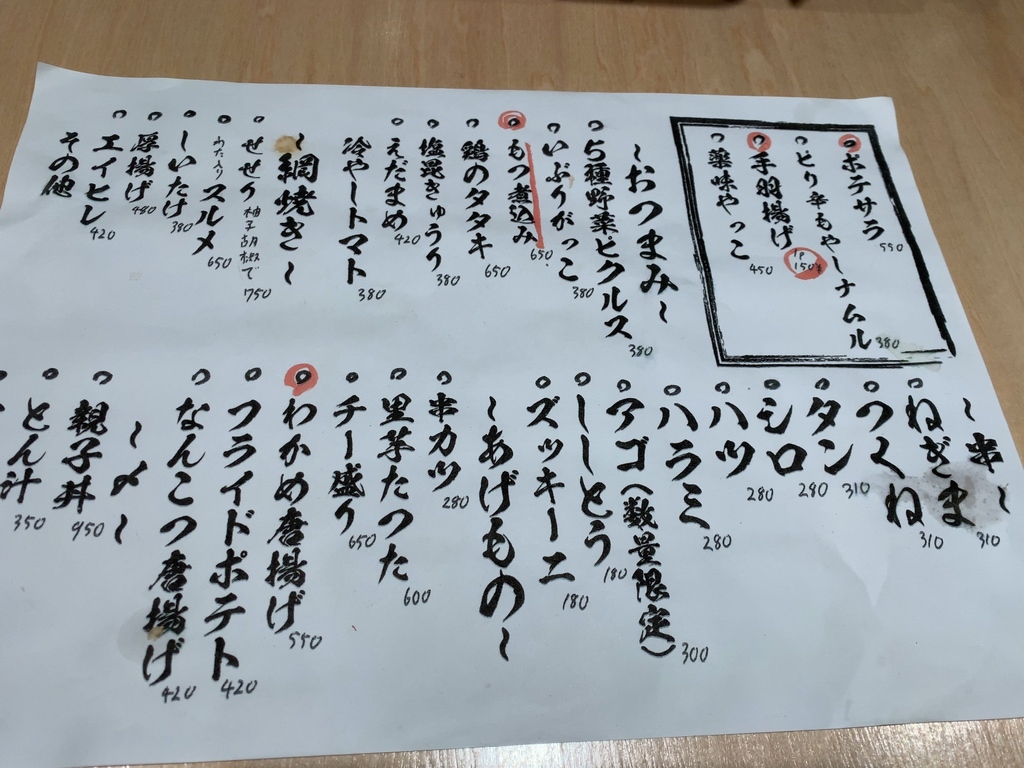 ポテサラ 550
とり辛もやしナムル 380
手羽揚げ 1P 150円
薬味やっこ 450
〜おつまみ〜
5種野菜ピクルス 380
いぶりがっこ 380
もつ煮込み 650
鶏のタタキ 650
塩昆きゅうり 380
えだまめ 420
冷やしトマト 380
〜網焼き〜
せせり柚子胡椒で 750
わた入りスルメ 650
しいたけ 380
厚揚げ 480
エイヒレ 420
その他
〜串〜
ねぎま 310
つくね 310
タン 310
シロ 280
ハツ 280
ハラミ 280
アゴ(数量限定) 300
ししとう 180
ズッキーニ 180
〜あげもの〜
串カツ 280
里芋たつた 600
チー盛り 650
わかめ唐揚げ 550
フライドポテト 420
なんこつ唐揚げ 420
〜〆〜
親子丼 950
とん汁 350